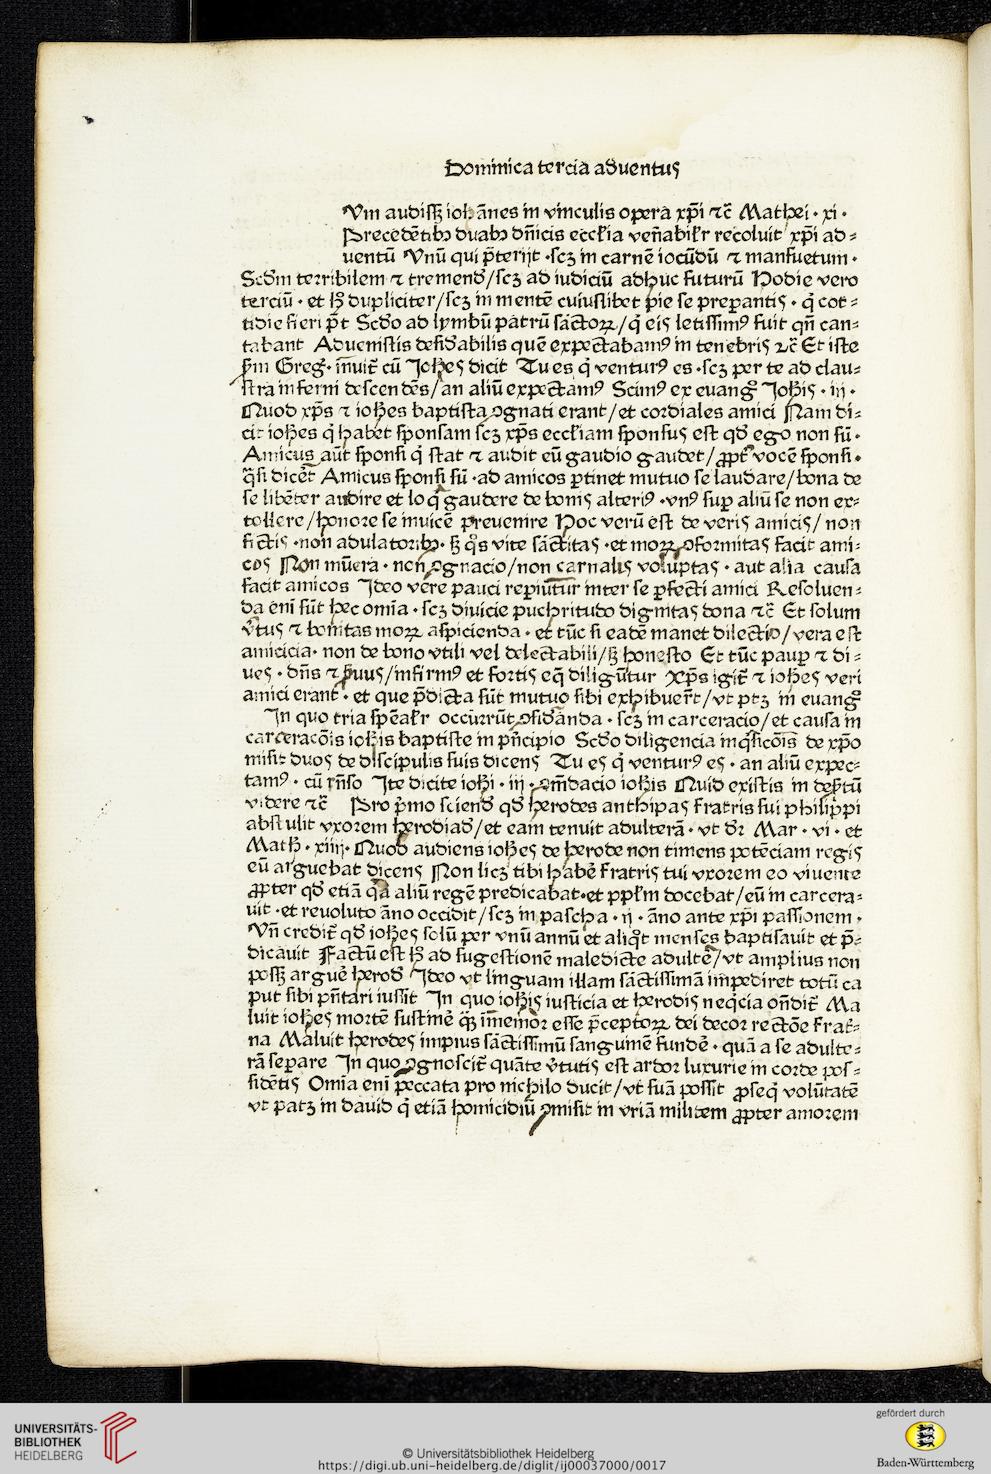 Dominica tercia adventus
Vm audiss̄ʒ iohānes in vinculis opera xp̄i ⁊c̄ Mathei · xi ·
Precedētibꝰ duabꝰ dn̄icis eccl̄ia ven̄abil̄r recoluit xp̄i ad⸗
ventū Vnū qui p̄terijt ·scʒ in carnē iocūdū ⁊ mansuetum ·
Scd̄m terribilem ⁊ tremend̄/scʒ ad iudiciū adhuc futurū Hodie vero
terciū · et hꝫ dupliciter/scʒ in mentē cuiuslibet pie se preꝑantis · q̄ cot⸗
tidie fieri p̄t Scd̄o ad lymbū patrū sāctoꝝ/q̄ eis letissimꝰ fuit qn̄ can⸗
tabant Advenistis desid̄abilis quē expectabamꝰ in tenebris ⁊c̄ Et iste
ẜm Greḡ· inuit̄ cū Joh̄es dicit Tu es q̄ venturꝰ es ·scʒ per te ad clau⸗
stra inferni descendēs/an aliū expectamꝰ Scimꝰ ex euangꝰ Joh̄is · iij ·
Quod xp̄s ⁊ ioh̄es baptista ꝯgnati erant/et cordiales amici Nam di⸗
cit ioh̄es q̄ habet sponsam scʒ xp̄s eccl̄iam sponsus est qd̄ ego non sū·
Amicus aūt sponsi q̄ stat ⁊ audit eū gaudio gaudet/ ꝓpt̄ vocē sponsi·
q̄si dicēt Amicus sponsi sū ·ad amicos ꝑtinet mutuo se laudare/bona de
se libēter audire et loq̄ gaudere de bonis alteriꝰ ·vnꝰ suꝑ aliū se non ex⸗
tollere/honore se inuicē prevenire Hoc verū est de veris amicis/ non
fictis ·non adulatoribꝰ· sꝫ q̊s vite sāctitas ·et moꝝ ꝯformitas facit ami⸗
cos Non mūera · non ꝯgnacio/non carnalis voluptas · aut alia causa
facit amicos Ideo vere pauci reperiūtur inter se ꝑfecti amici Resoluen⸗
da eni sūt hec om̄ia · scʒ diuicie puchritudo dignitas dona ⁊c̄ Et solum
v̄tus ⁊ bonitas moꝝ aspicienda · et tūc si eadē manet dilectio/vera est
amicicia· non de bono vtili vel delectabili/sꝫ honesto Et tūc pauꝑ ⁊ di⸗
ues · dn̄s ⁊ ẜuus/infirmꝰ et fortis eq̄ diligūtur Xp̄s igit̄ ⁊ ioh̄es veri
amici erant · et que p̄dicta sūt mutuo sibi exhibuer̄t/vt ptʒ in euangꝰ
In quo tria sp̄eal̄r occurrūt ꝯsid̄anda · scʒ in carceracio/et causa in
carceracōis ioh̄is baptiste in pn̄cipio Scd̄o diligencia inq̄sicōis de xp̄o
misit duos de discipulis suis dicens Tu es q̄ venturꝰ es · an aliū expec⸗
tamꝰ · cū rn̄so Ite dicite ioh̄i · iij · ꝯm̄dacio ioh̄is Quid existis in dep̄tū
videre ⁊c̄ Pro p̄mo sciend̄ qd̄ herodes anthipas fratris sui philippi
abstulit vxorem herodiad̄/et eam tenuit adulterā · vt dr̄ Mar · vi · et
Math̄ · xiiij· Quod audiens ioh̄es de herode non timens potēciam regis
eū arguebat dicens Non licʒ tibi habē fratris tui vxorem eo vivente
ꝓpter qd̄ etiā q̄a aliū regē predicabat·et ppl̄m docebat/eū in carcera⸗
uit ·et reuoluto āno occidit/scʒ in pascha · ij · āno ante xp̄i passionem ·
Vn̄ credit̄ qd̄ ioh̄es solū per vnū annū et aliq̊t menses baptisauit et p̄⸗
dicauit Factū est hꝫ ad sugestionē maledicte adultē/vt amplius non
possꝫ arguē herod̄ Ideo vt linguam illam sāctissimā impediret totū ca
put sibi pn̄tari iussit In quo ioh̄is iusticia et herodis neq̄cia on̄dit̄ Ma
luit ioh̄es mortē sustinē q̄ꝫ īmemor esse p̄ceptoꝝ dei decor rectōe frat̄⸗
na Maluit herodes impius sāctissimū sanguinē fundē · quā a se adulte⸗
rā separe In quo ꝯgnoscit̄ quāte v̄tutis est ardor luxurie in corde pos⸗
sidētis Omīa eni peccata pro nichilo ducit/vt suā possit ꝓseq̄ volūtatē
vt patʒ in dauid q̄ etiā homicidiū ꝯmisit in vriā militem ꝓpter amorem
UNIVERSITÄTS-
BIBLIOTHEK
HEIDELBERG
© Universitätsbibliothek Heidelberg
https://digi.ub.uni-heidelberg.de/diglit/ij00037000/0017
gefördert durch
Baden-Württemberg